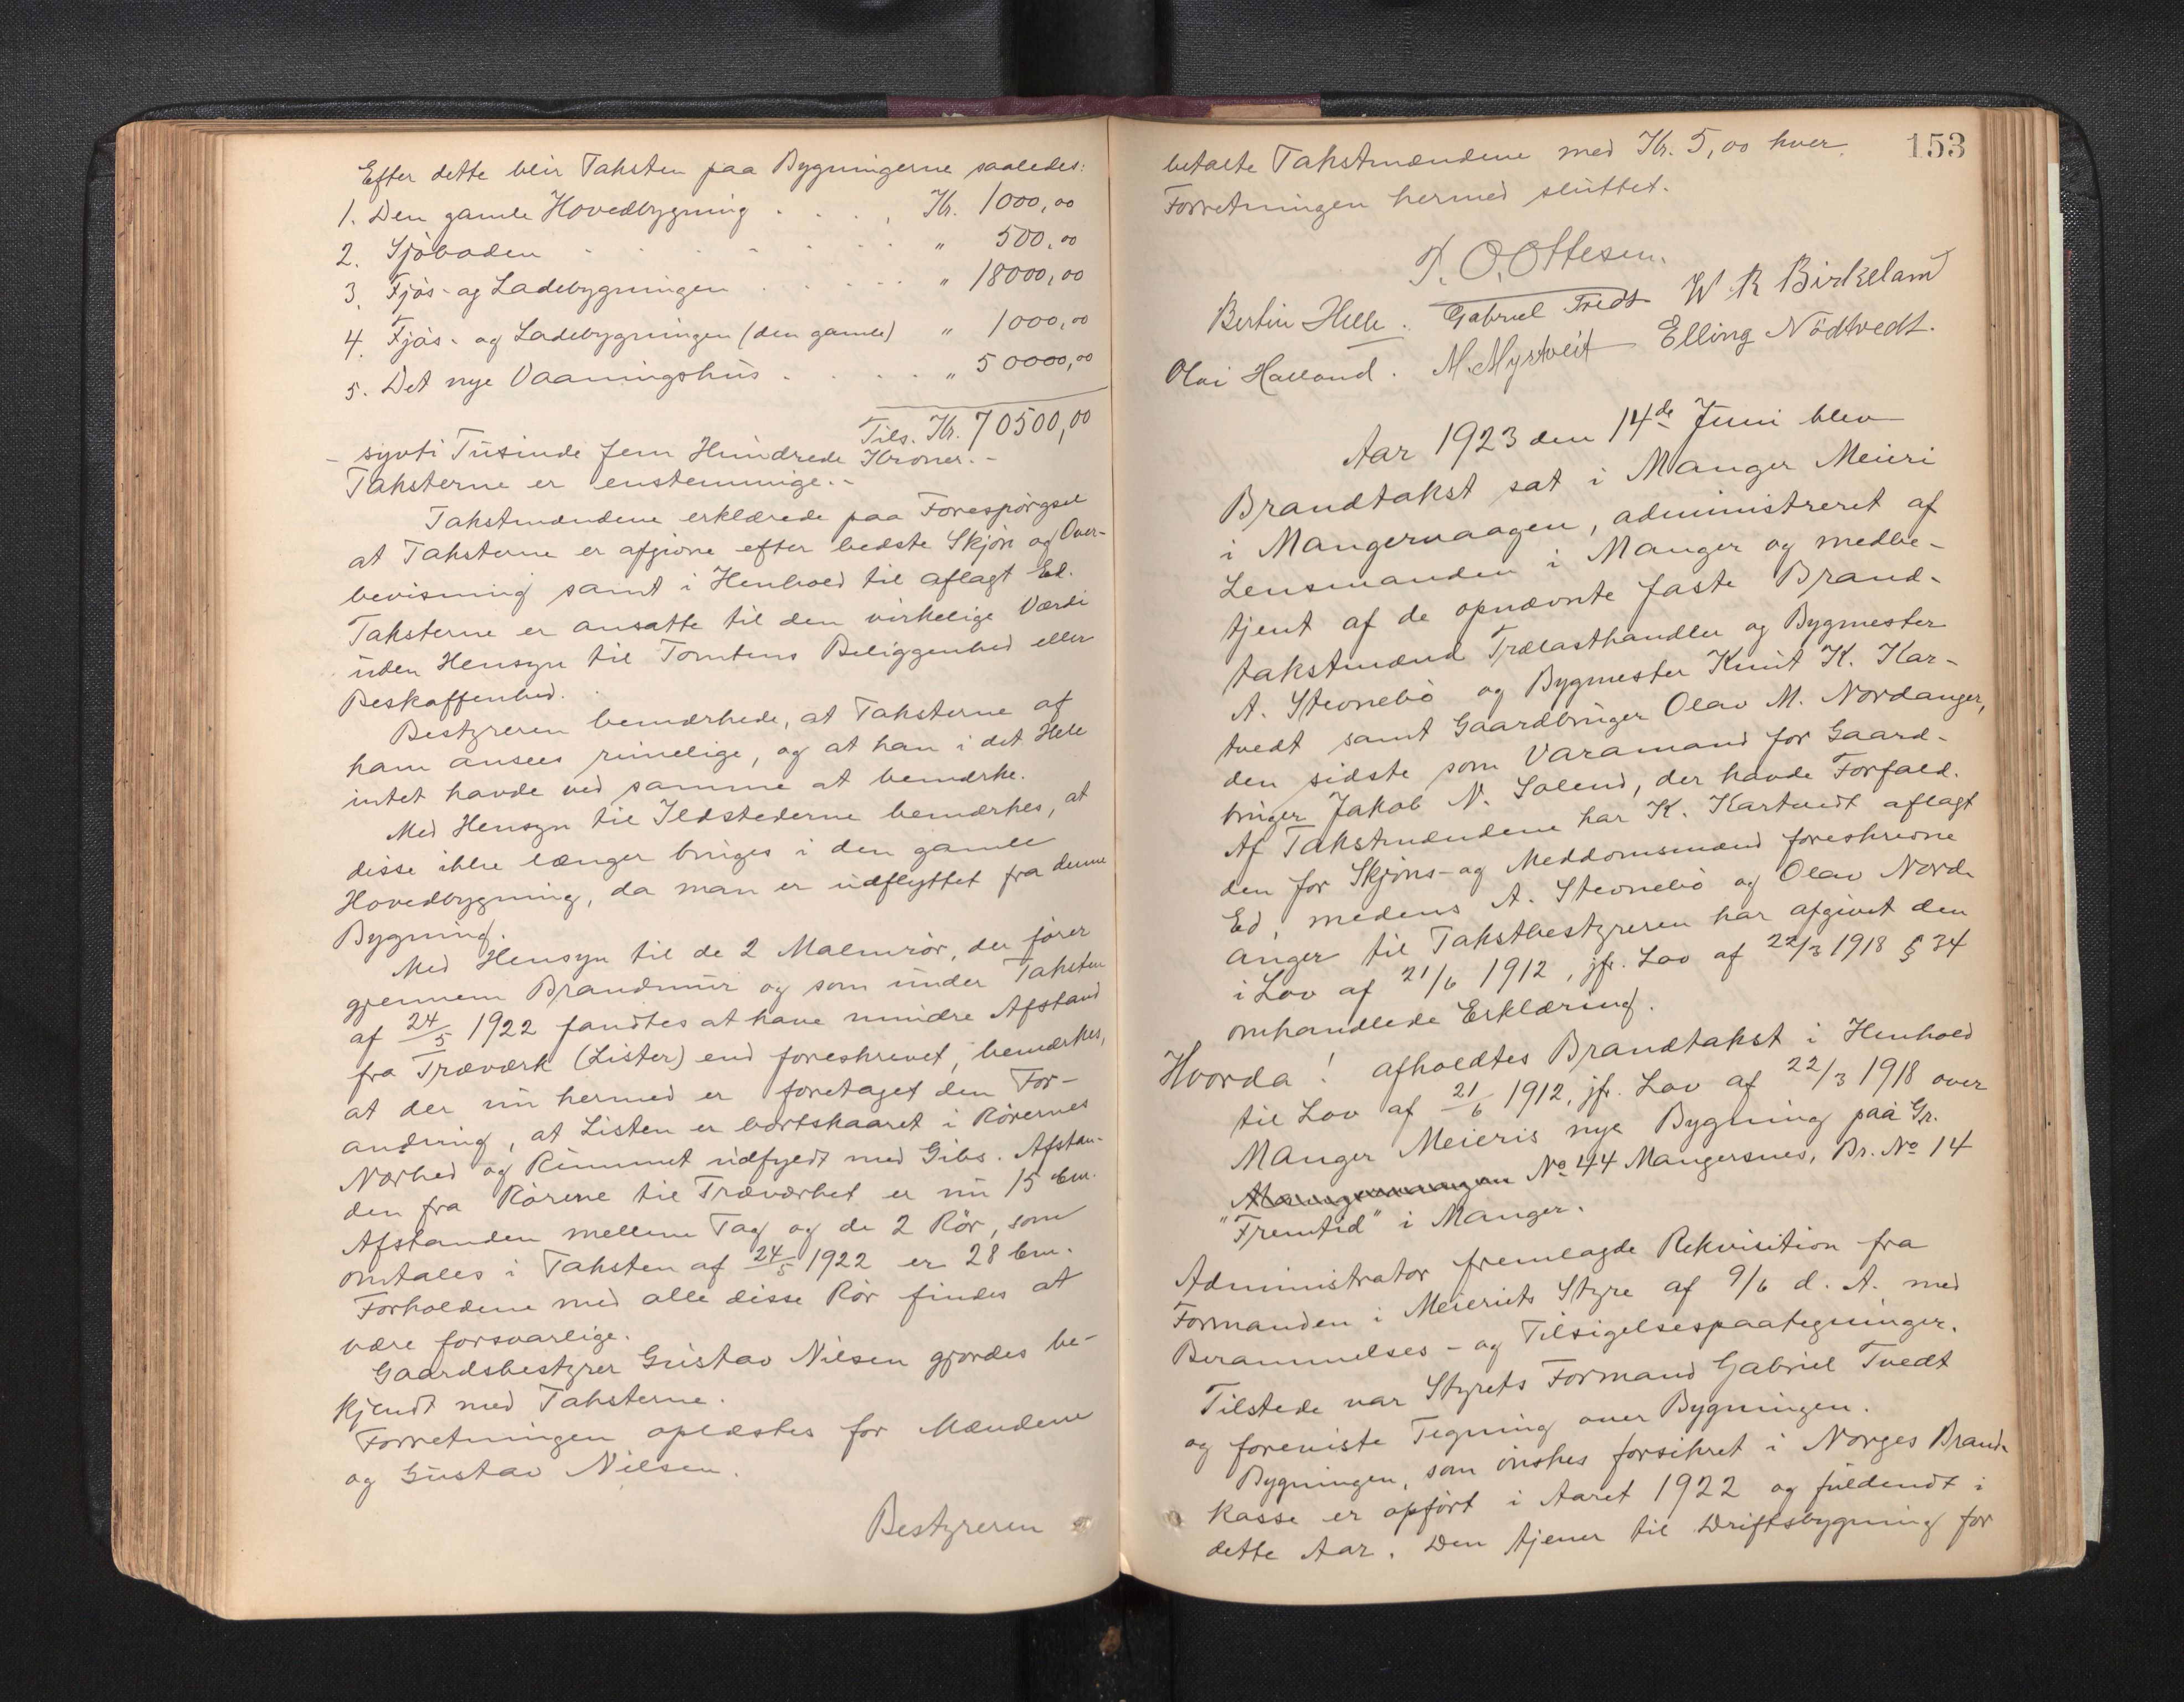 Efter dette blir Taksten paa Bygningerne saaledes:
1. Den gamle Hovedbygning . . . . Kr. 1000,00
2. Sjöboden . . . . . . . " 500,00
3. Fjös- og Ladebygningen . . . . . " 18000,00
4. Fjös- og Ladebygningen (den gamle) " 1000,00
5. Det nye Vaaningshus . . . . . " 50000,00
Tils. Kr. 70500,00
- sytti Tusinde fem Hundrede Kroner. -
Taksterne er enstemmige. -
Takstmændene erklærede paa Forespørgsel
at Taksterne er afgivne efter bedste Skjön og Over-
bevisning samt i Henhold til aflagt Ed.
Taksterne er ansatte til den virkelige Værdi
uden Hensyn til Tomtens Beliggenhed eller
Beskaffenhed.
Bestyreren bemærkede, at Taksterne af
ham ansees rimelige, og at han i det Hele
intet havde ved samme at bemærke.
Med Hensyn til Ildstederne bemærkes, at
disse ikke længer bruges i den gamle
Hovedbygning, da man er udflyttet fra denne
Bygning.
Med Hensyn til de 2 Malmrör, der förer
gjennem Brandmur og som under Taksten
af 24/5 1922 fandtes at have mindre Afstand
fra Træværk (Lister) end foreskrevet, bemærkes,
at der nu hermed er foretaget den For-
andring, at Listen er bortskaaret i Rörernes
Nærhed og Rummet udfyldt med Gibs. Afstan-
den fra Rörene til Træværket er nu 15 cm.
Afstanden mellem Tag og de 2 Rör, som
omtales i Taksten af 24/5 1922 er 28 cm.
Forholdene med alle disse Rör findes at
være forsvarlige.
Gaardsbestyrer Gustav Nilsen gjordes be-
kjendt med Taksterne.
Forretningen oplæstes for Mændene
og Gustav Nilsen.
Bestyreren
153
betalte Takstmændene med Kr. 5,00 hver.
Forretningen hermed sluttet.
P. O. Ottesen.
Bertin Helle. Gabriel Tvedt W R Birkeland
Olai Halland. M. Myrtveit Elling Nödtvedt.
Aar 1923 den 14de Juni blev
Brandtakst sat i Manger Meieri
i Mangervaagen, administreret af
Lensmanden i Manger og medbe-
tjent af de opnævnte faste Brand-
takstmænd Trælasthandler og Bygmester
A. Stevnebö og Bygmester Knut K. Kar-
tvedt samt Gaardbruger Olav M. Nordanger,
den sidste som Varamand for Gaard-
bruger Jakob N. Solend, der havde Forfald.
Af Takstmændene har K. Kartvedt aflagt
den for Skjöns- og Meddomsmænd foreskrevne
Ed, medens A. Stevnebö og Olav Nord-
anger til Takstbestyreren har afgivet den
i Lov af 21/6 1912, jfr. Lov af 22/3 1918 § 34
omhandlede Erklæring.
Hvorda! afholdtes Brandtakst i Henhold
til Lov af 21/6 1912, jfr. Lov af 22/3 1918 over
Manger Meieris nye Bygning paa Gr.
Mangervaagen No 44 Mangersnes, Br. No 14
"Fremtid" i Manger.
Administrator fremlagde Rekvisition fra
Formanden i Meieriets Styre af 9/6 d. A. med
Berammelses- og Tilsigelsespaategninger.
Tilstede var Styrets Formand Gabriel Tvedt
og foreviste Tegning over Bygningen.
Bygningen, som önskes forsikret i Norges Brand-
kasse er opfört i Aaret 1922 og fuldendt i
dette Aar. Den tjener til Driftsbygning for